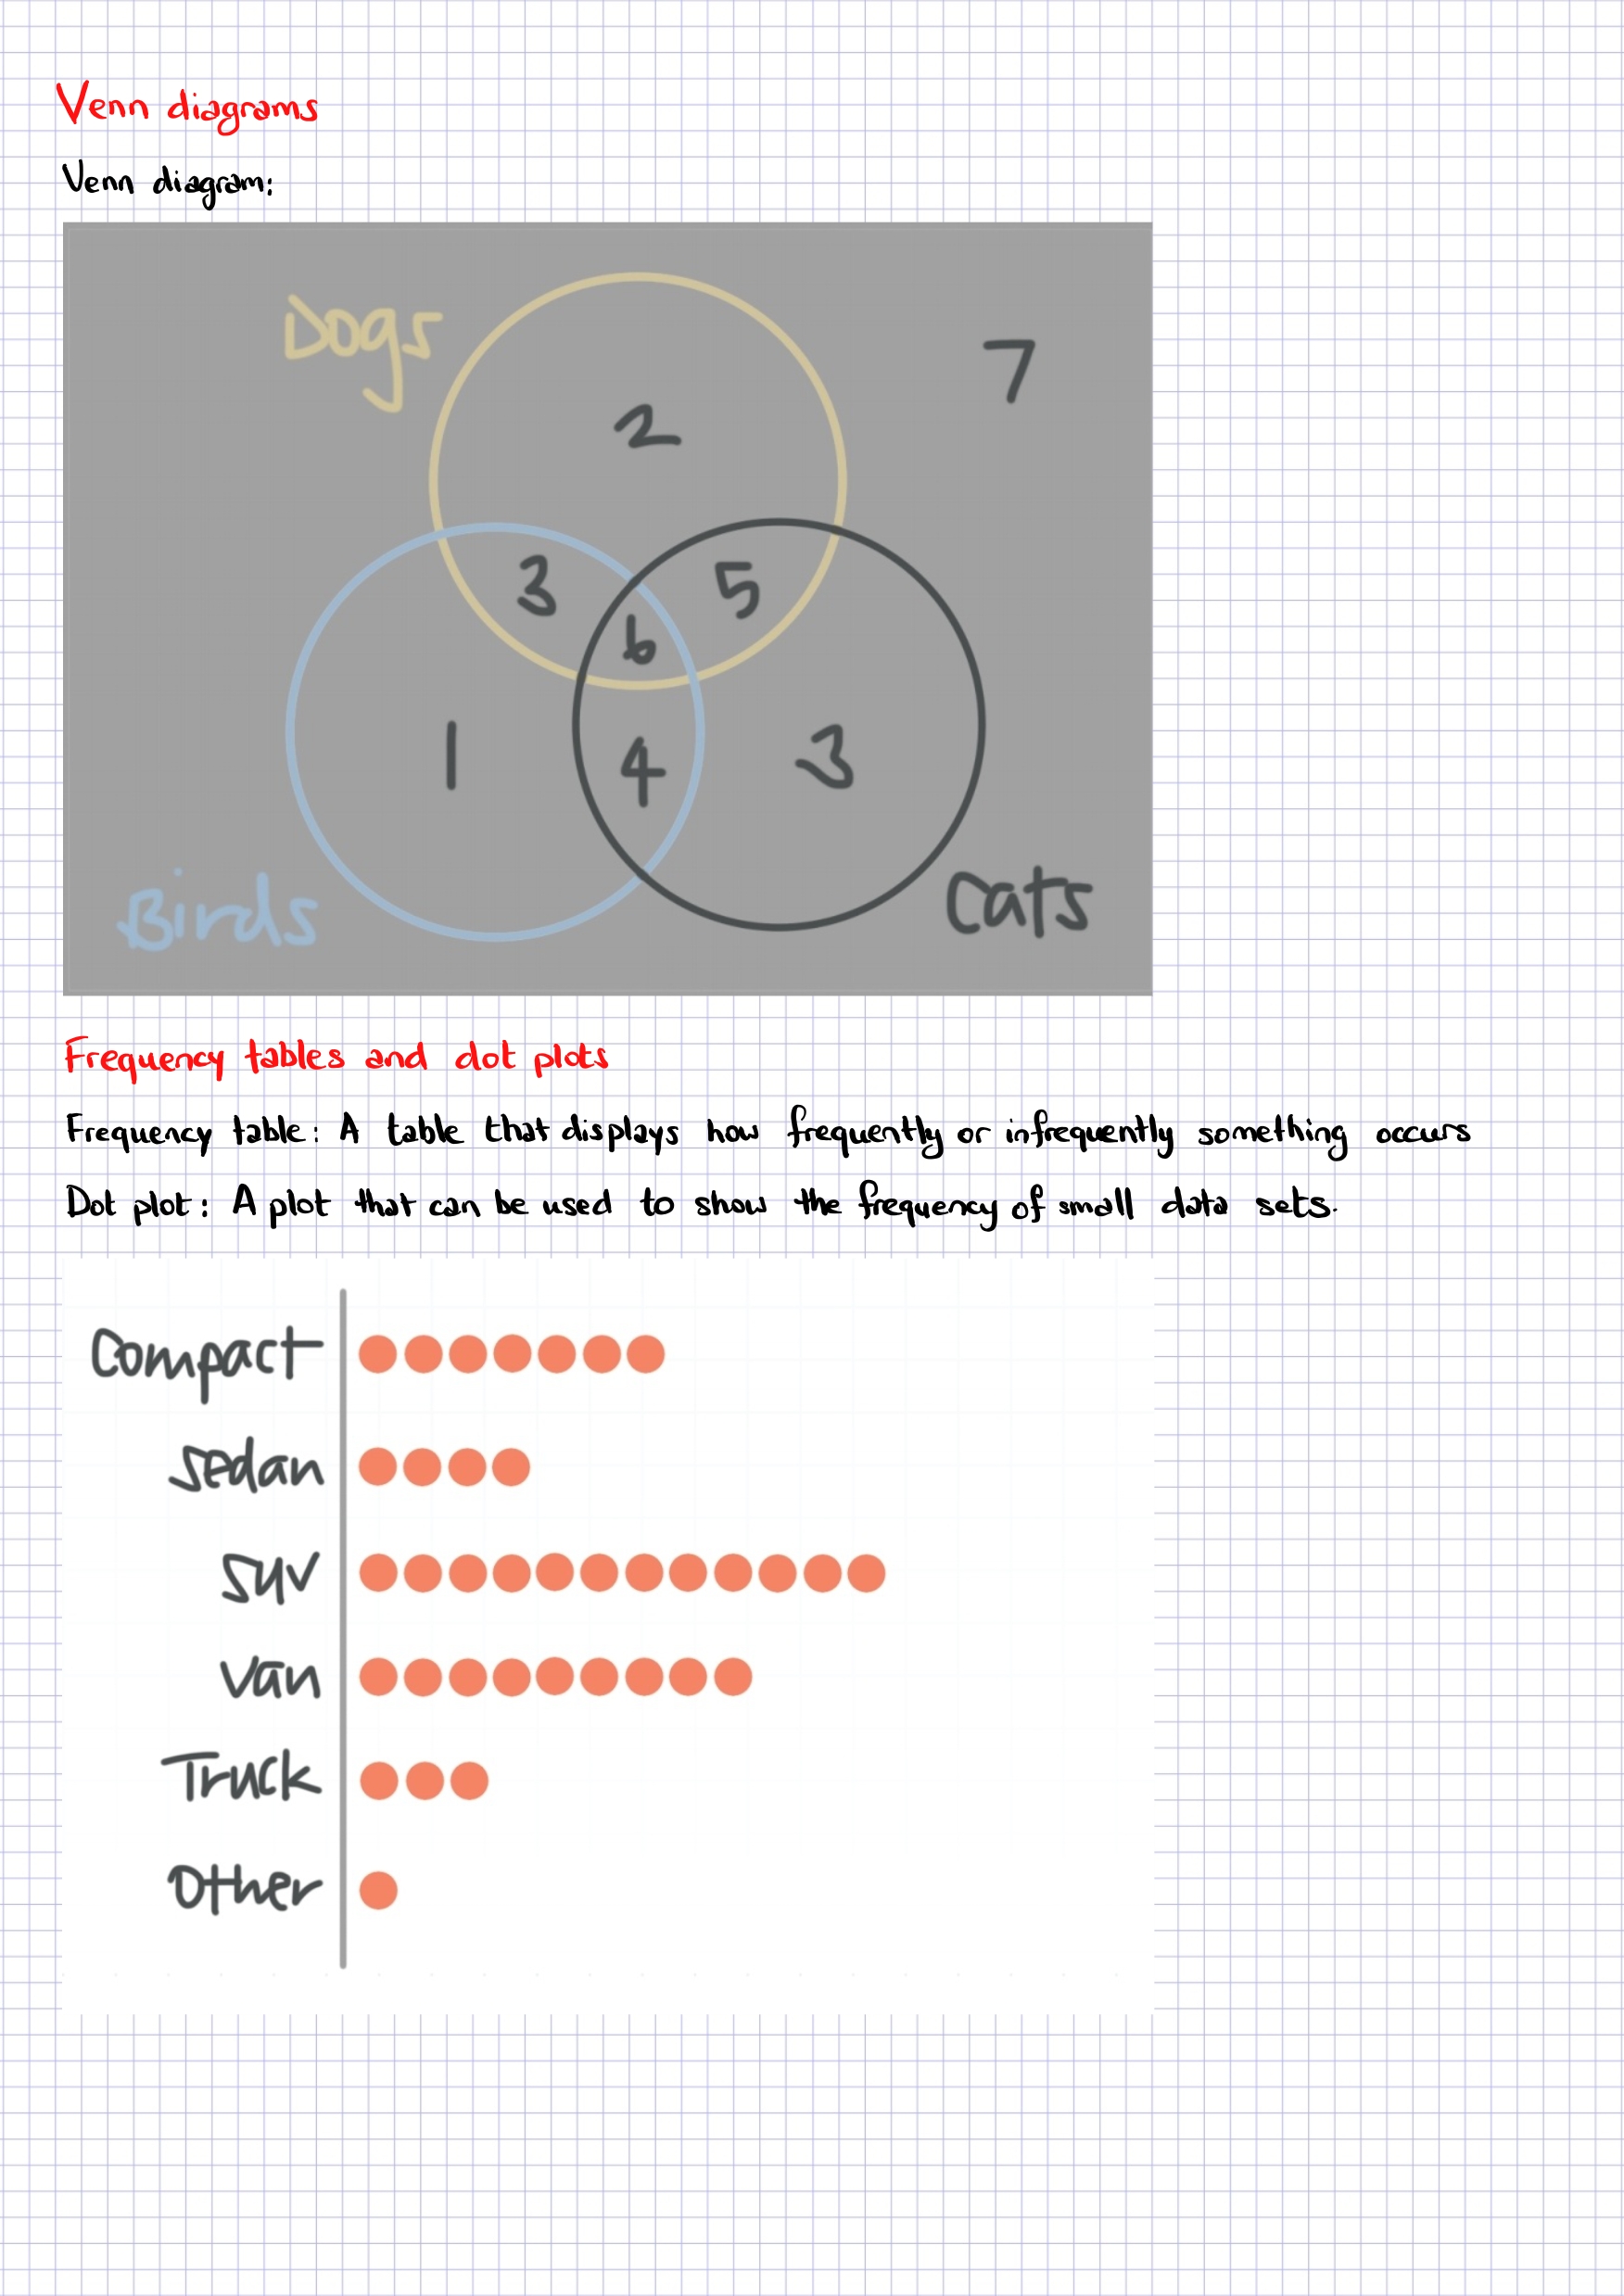 Venn diagrams
Venn diagram:
Dogs
7
2
3
5
6
1
4
3
Birds
Cats
Frequency tables and dot plots
Frequency table: A table that displays how frequently or infrequently something occurs
Dot plot: A plot that can be used to show the frequency of small data sets.
Compact
Sedan
SUV
Van
Truck
Other